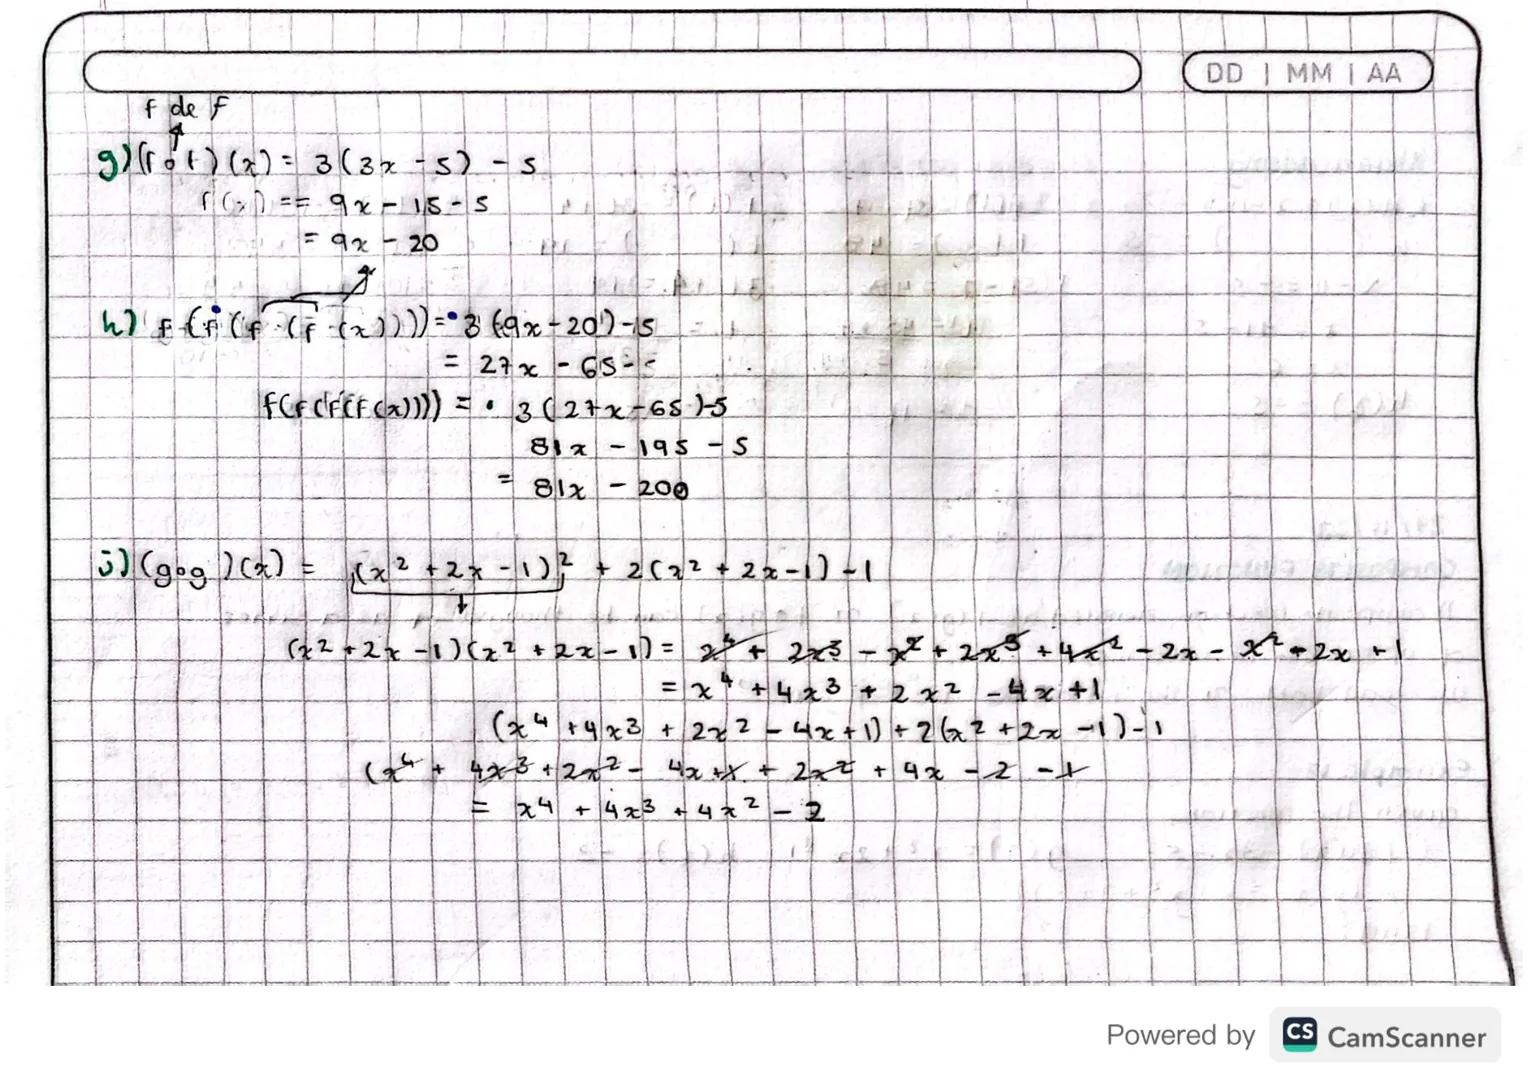 DD | MM | AA
f de f
g) (f o f)(x) = 3(3x - 5) - 5
f(x) == 9x - 15 - 5
= 9x - 20
h) f (f (f (f (x)))) = 3 (9x - 20) - 5
= 27x - 65 -
f(f(f(f(x)))) = 3(27x - 65) - 5
81x - 195 - 5
= 81x - 200
j) (g o g)(x) = (x² + 2x - 1)² + 2(x² + 2x - 1) - 1
(x² + 2x - 1)(x² + 2x - 1) = x⁴ + 2x³ - x² + 2x³ + 4x² - 2x - x² - 2x + 1
= x⁴ + 4x³ + 2x² - 4x + 1
(x⁴ + 4x³ + 2x² - 4x + 1) + 2(x² + 2x - 1) - 1
(x⁴ + 4x³ + 2x² - 4x + 1 + 2x² + 4x - 2 - 1
= x⁴ + 4x³ + 4x² - 2
Powered by CS CamScanner